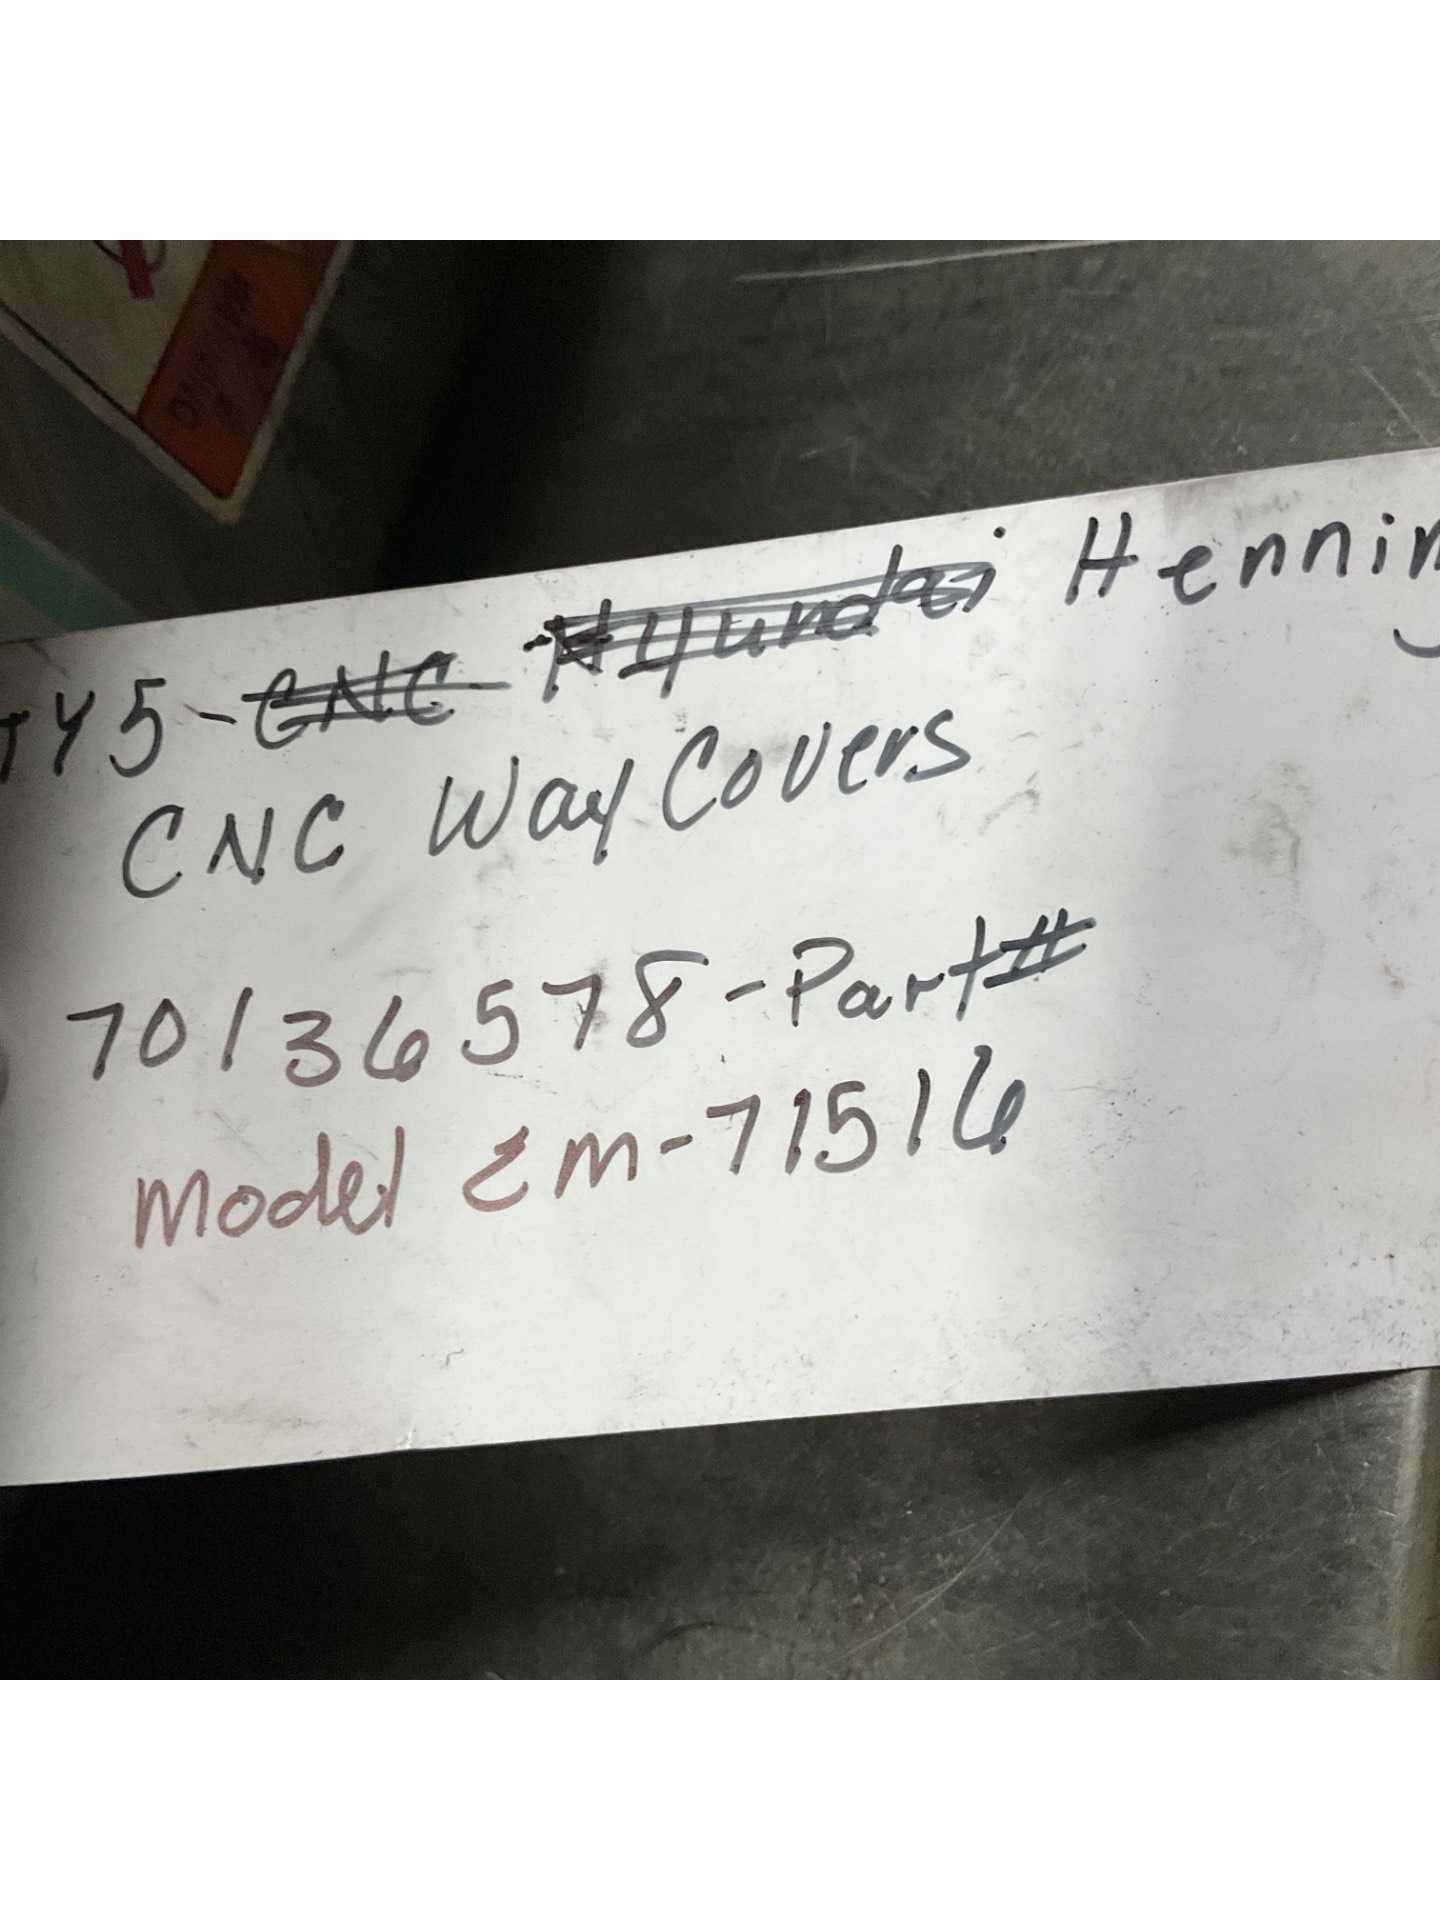 TY5-CNC Hyundai Henning
CNC Way Covers
70136578-Part#
Model EM-71516